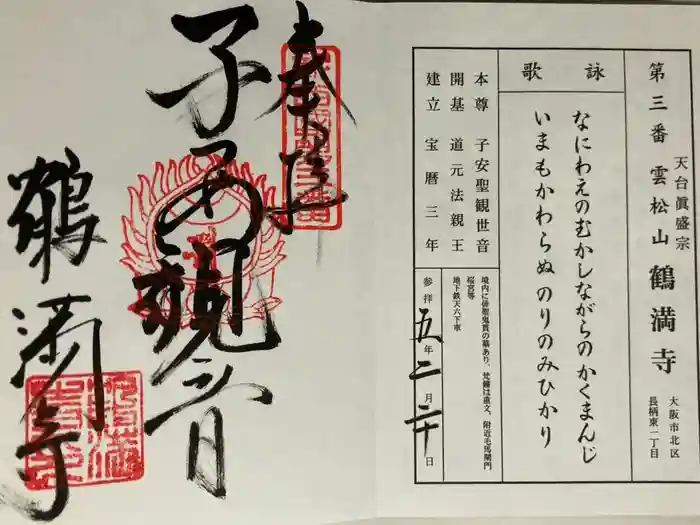 第三番 天台眞盛宗 雲松山 鶴満寺 大阪市北区 長柄東一丁目
詠歌
なにわえのむかしながらのかくまんじ
いまもかわらぬのりのみひかり
本尊 子安聖観世音
開基 道元法親王
建立 宝暦三年
境内に俳聖鬼貫の墓あり、梵鐘は重文、附近毛馬閘門
桜宮等
地下鉄天六下車
参拝 五年 二月 二十日
奉拝
子安観音
鶴満寺